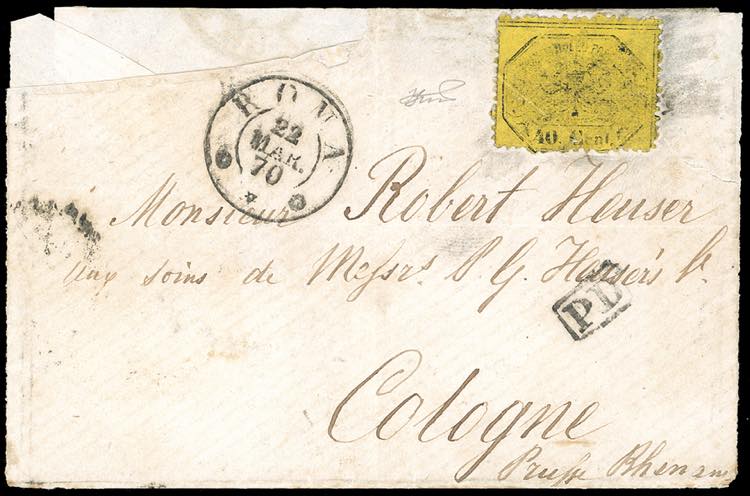 ROMA
22
MAR.
70
40. Cent.
Monsieur Robert Heuser
aux soins de Messrs P. G. Heuser's
PD
Cologne
Prusse Rhenane